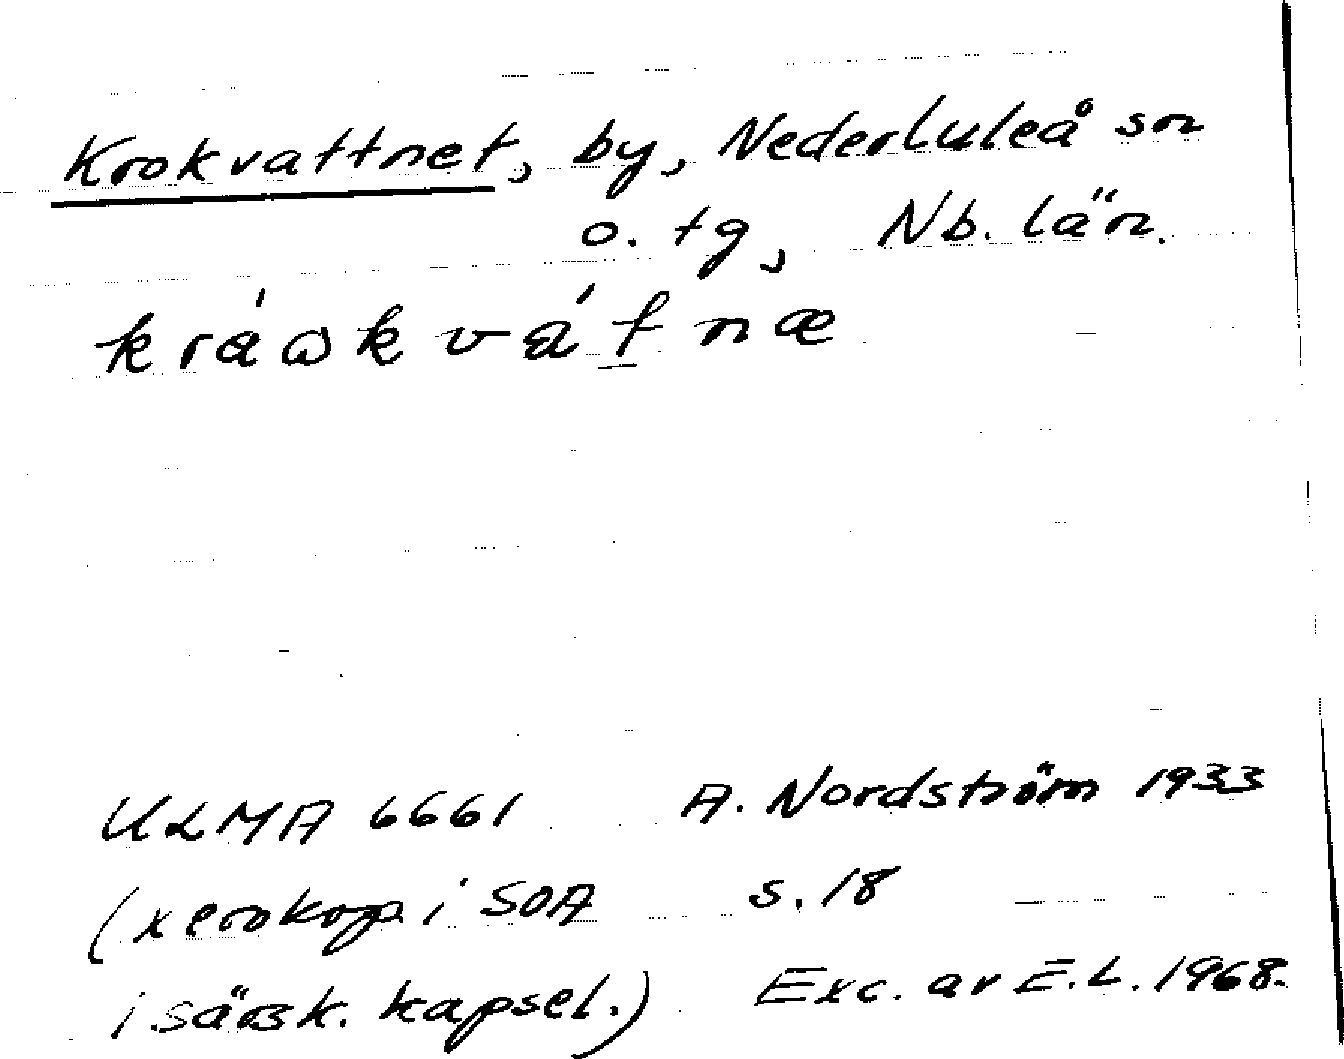 Krokvattnet, by, Nederluleå sn
o. tg, Nb. län.
kráωkvátnæ
ULMA 6661 A. Nordström 1933
(xerokop. i SOA s. 18
i särsk. kapsel.) Exc. av E.L. 1968.